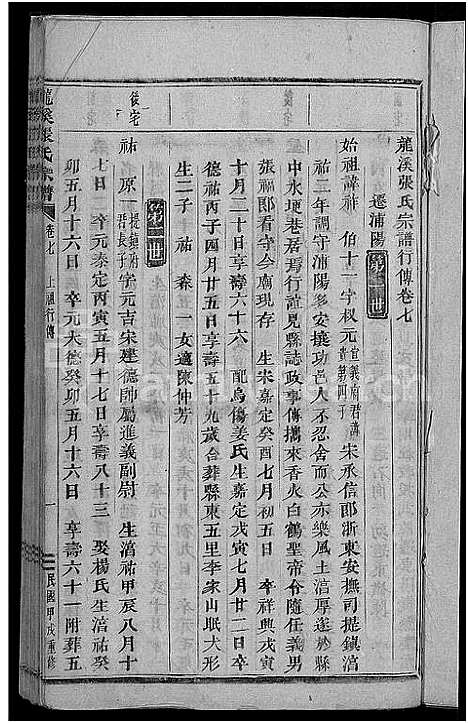 龍溪張氏宗譜行傳卷七
遷浦陽 第一世
始祖諱祚 伯十一字权元 宣義府君諱 第四子 宋承信郎浙東安撫司提鎮湻
祐二年調守浦陽多安攘功邑人不忍舍而公亦樂風土湻厚遂於縣
中永埂巷居焉行誼見縣誌政事傳攜來香火白鶴聖帝令隨任義男
張福郎看守今廟現存 生宋嘉定癸酉七月初五日 卒祥興戊寅
十月二十日享壽六十六 配烏傷姜氏生嘉定戊寅七月廿二日卒
德祐丙子四月廿五日享壽五十九歲合葬縣東五里李家山眠犬形
生二子 祐 森 一女適陳仲芳
第二世
後宅
祐 原一 提鎮府君長子 字元吉宋建德帥屬進義副尉 生湻祐甲辰八月十
七日 卒元泰定丙寅五月十七日享壽八十三 娶楊氏生湻祐癸
卯五月十六日 卒元大德癸卯五月十六日 享壽六十一附葬五
龍溪張氏宗譜 卷七 上 行傳 一 民國甲戌重修